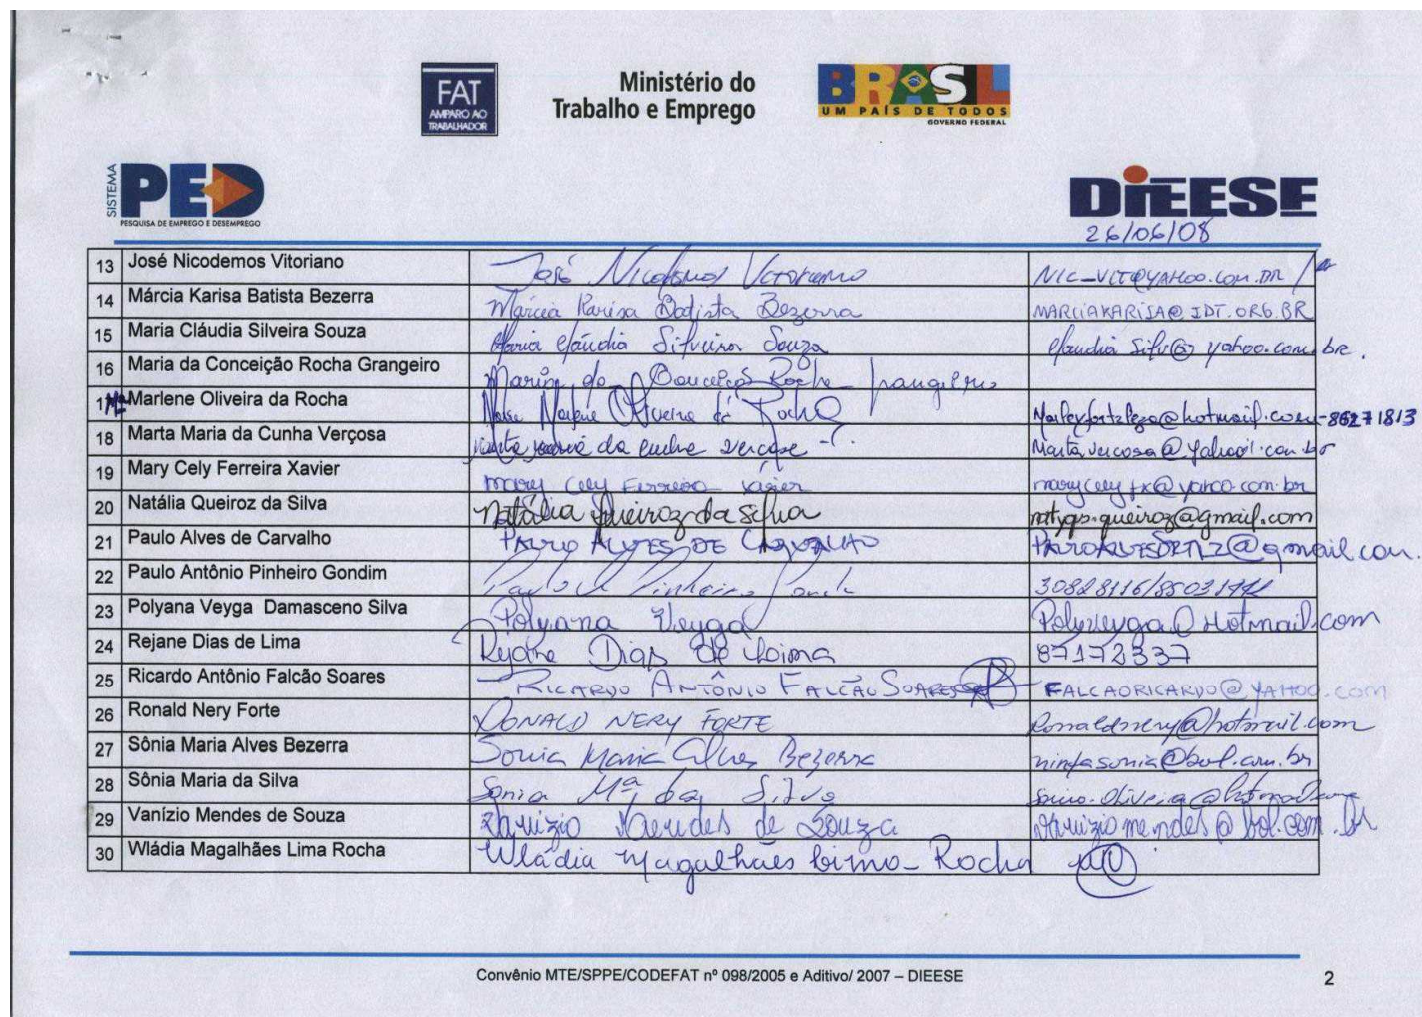 FAT
AMPARO AO
TRABALHADOR
Ministério do
Trabalho e Emprego
BRASIL
UM PAÍS DE TODOS
GOVERNO FEDERAL
SISTEMA
PED
PESQUISA DE EMPREGO E DESEMPREGO
DIEESE
26/06/08
13 José Nicodemos Vitoriano José Nicodemos Vitoriano NIC_VIT@YAHOO.COM.BR
14 Márcia Karisa Batista Bezerra Márcia Karisa Batista Bezerra MARCIAKARISA@IDT.ORG.BR
15 Maria Cláudia Silveira Souza Maria Cláudia Silveira Souza
16 Maria da Conceição Rocha Grangeiro Maria da Conceição Rocha
17 Mª Marlene Oliveira da Rocha Marlene Oliveira da Rocha Marleyfortaleza@hotmail.com-86271813
18 Marta Maria da Cunha Verçosa Marta Maria da Cunha Vercosa
19 Mary Cely Ferreira Xavier Mary Cely Ferreira Xavier marycelyfx@yahoo.com.br
20 Natália Queiroz da Silva Natália Queiroz da Silva
21 Paulo Alves de Carvalho PAULO ALVES DE CARVALHO
22 Paulo Antônio Pinheiro Gondim Pinheiro
23 Polyana Veyga Damasceno Silva Polyana Veyga Polyveyga@Hotmail.com
24 Rejane Dias de Lima Rejane Dias de Lima 87172337
25 Ricardo Antônio Falcão Soares RICARDO ANTÔNIO FALCÃO SOARES FALCAORICARDO@YAHOO.COM
26 Ronald Nery Forte RONALD NERY FORTE Ronaldnery@hotmail.com
27 Sônia Maria Alves Bezerra Sonia Maria Alves Bezerra ninfasonia@bol.com.br
28 Sônia Maria da Silva Sonia Mª da Silva
29 Vanízio Mendes de Souza Vanizio Mendes de Souza vaniziomendes@bol.com.br
30 Wládia Magalhães Lima Rocha Wládia Magalhaes Lima Rocha
Convênio MTE/SPPE/CODEFAT nº 098/2005 e Aditivo/ 2007 – DIEESE
2